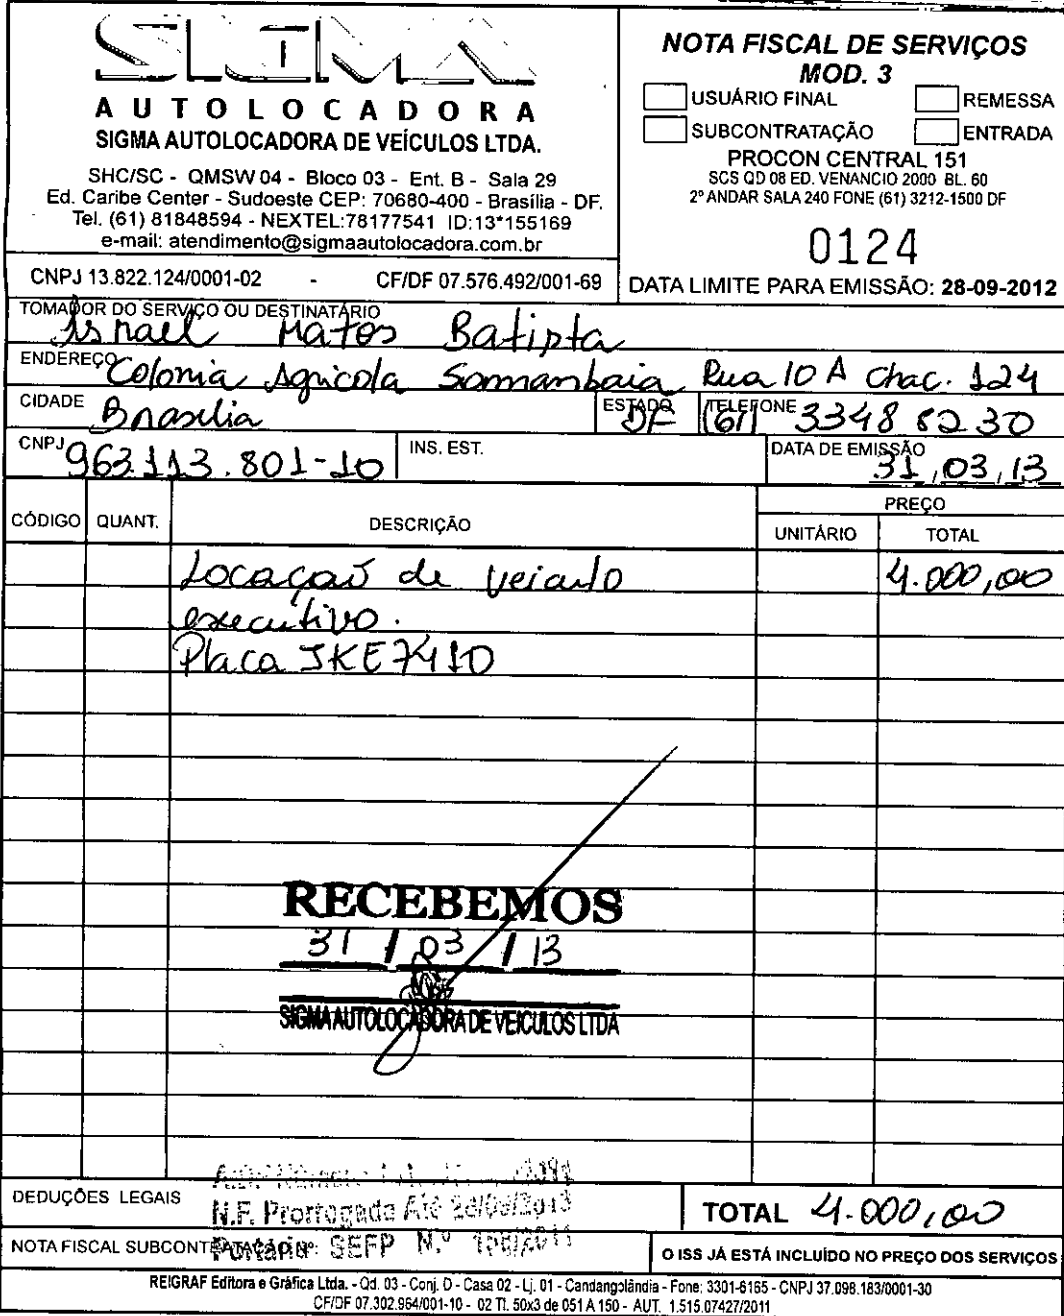 SIGMA
AUTOLOCADORA
SIGMA AUTOLOCADORA DE VEÍCULOS LTDA.
SHC/SC - QMSW 04 - Bloco 03 - Ent. B - Sala 29
Ed. Caribe Center - Sudoeste CEP: 70680-400 - Brasília - DF.
Tel. (61) 81848594 - NEXTEL:78177541 ID:13*155169
e-mail: atendimento@sigmaautolocadora.com.br
CNPJ 13.822.124/0001-02 - CF/DF 07.576.492/001-69
NOTA FISCAL DE SERVIÇOS
MOD. 3
USUÁRIO FINAL REMESSA
SUBCONTRATAÇÃO ENTRADA
PROCON CENTRAL 151
SCS QD 08 ED. VENANCIO 2000 BL. 60
2º ANDAR SALA 240 FONE (61) 3212-1500 DF
0124
DATA LIMITE PARA EMISSÃO: 28-09-2012
TOMADOR DO SERVIÇO OU DESTINATÁRIO
Israel Matos Batista
ENDEREÇO Colonia Agricola Samambaia Rua 10 A Chac. 124
CIDADE Brasilia ESTADO DF TELEFONE (61) 3348 8230
CNPJ 963.113.801-10 INS. EST. DATA DE EMISSÃO 31,03,13
CÓDIGO QUANT. DESCRIÇÃO PREÇO
UNITÁRIO TOTAL
Locação de veiculo 4.000,00
executivo.
Placa JKE7410
RECEBEMOS
31 / 03 / 13
SIGMA AUTOLOCADORA DE VEICULOS LTDA
DEDUÇÕES LEGAIS
N.F. Prorrogada Até
TOTAL 4.000,00
NOTA FISCAL SUBCONTRATAÇÃO Nº:
Portaria SEFP N.º
O ISS JÁ ESTÁ INCLUÍDO NO PREÇO DOS SERVIÇOS
REIGRAF Editora e Gráfica Ltda. - Qd. 03 - Conj. D - Casa 02 - Lj. 01 - Candangolândia - Fone: 3301-6165 - CNPJ 37.098.183/0001-30
CF/DF 07.302.964/001-10 - 02 Tl. 50x3 de 051 A 150 - AUT. 1.515.07427/2011